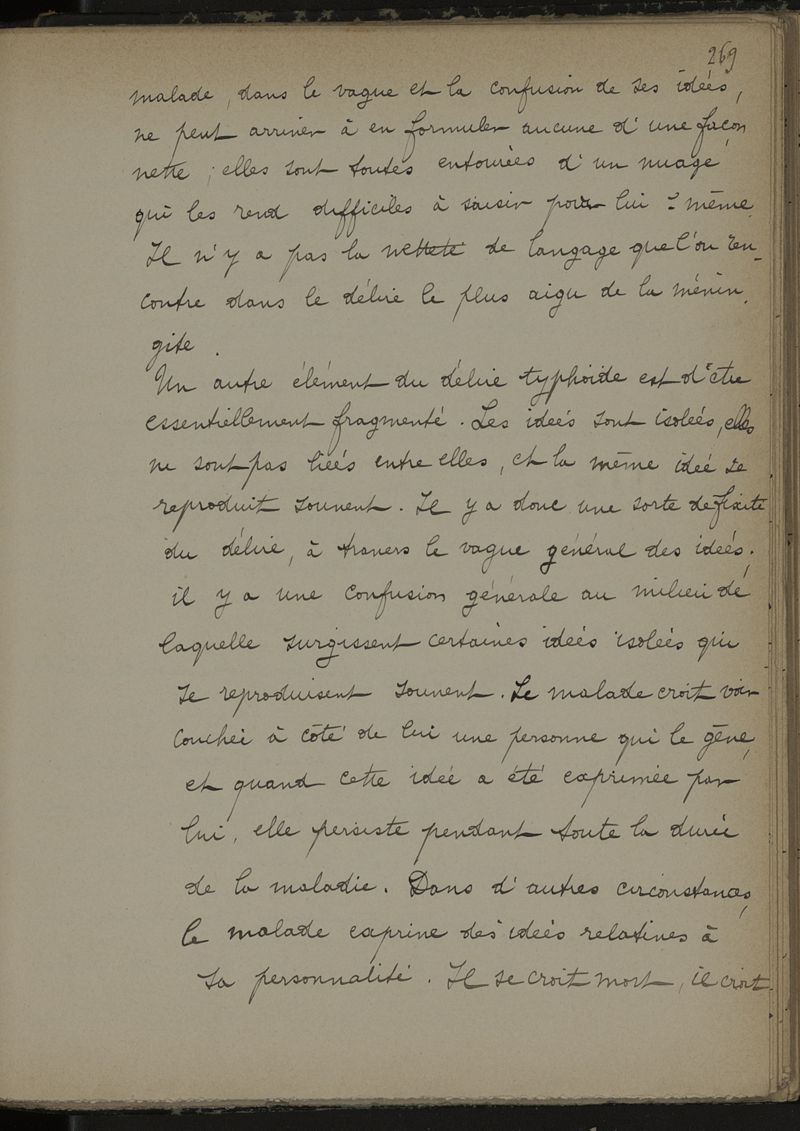 269
malade, dans le vague et la confusion de ses idées,
ne peut arriver à en formuler aucune d'une façon
nette ; elles sont toutes entourées d'un nuage
qui les rend difficiles à saisir pour lui-même.
Il n'y a pas la netteté de langage que l'on ren-
contre dans le délire le plus aigu de la ménin-
gite.
Un autre élément du délire typhoïde est d'être
essentiellement fragmenté. Les idées sont isolées, elles
ne sont pas liées entre elles, et la même idée se
reproduit souvent. Il y a donc une sorte de fixité
du délire, à travers le vague général des idées ;
il y a une confusion générale au milieu de
laquelle surgissent certaines idées isolées qui
se reproduisent souvent. Le malade croit voir
couchée à côté de lui une personne qui le gêne,
et quand cette idée a été exprimée par
lui, elle persiste pendant toute la durée
de la maladie. Dans d'autres circonstances,
le malade exprime des idées relatives à
sa personnalité. Il se croit mort, il croit